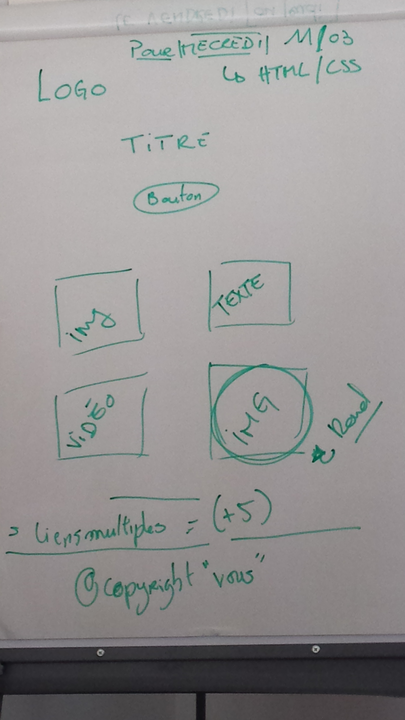 Pour MECREDI 11/03
↳ HTML/CSS
LOGO
TITRE
Bouton
img
TEXTE
VIDÉO
IMG
Rond
= liens multiples = (+5)
@copyright "vous"